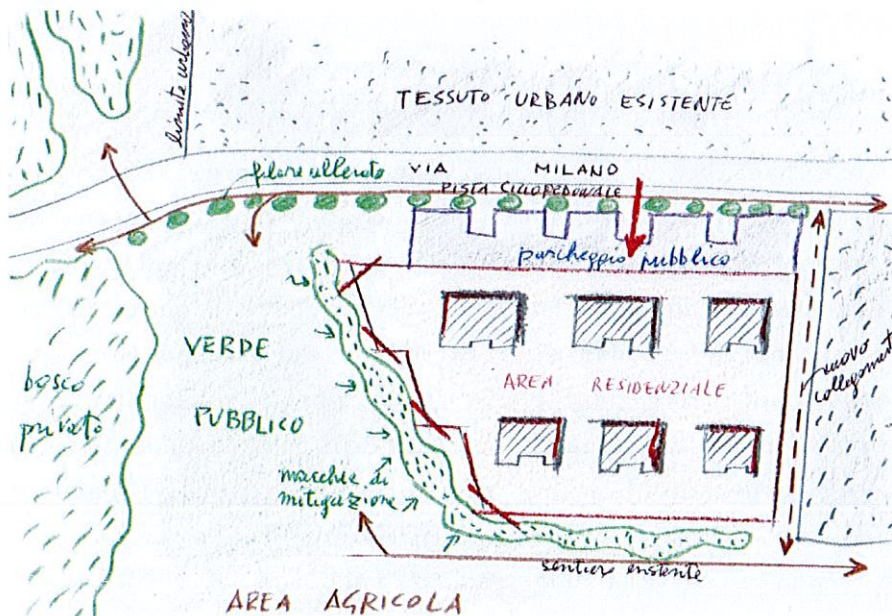 limite urbano
TESSUTO URBANO ESISTENTE
filare alberato
VIA MILANO
PISTA CICLOPEDONALE
parcheggio pubblico
VERDE
PUBBLICO
bosco
privato
AREA RESIDENZIALE
nuovo
collegamento
macchie di
mitigazione
sentiero esistente
AREA AGRICOLA